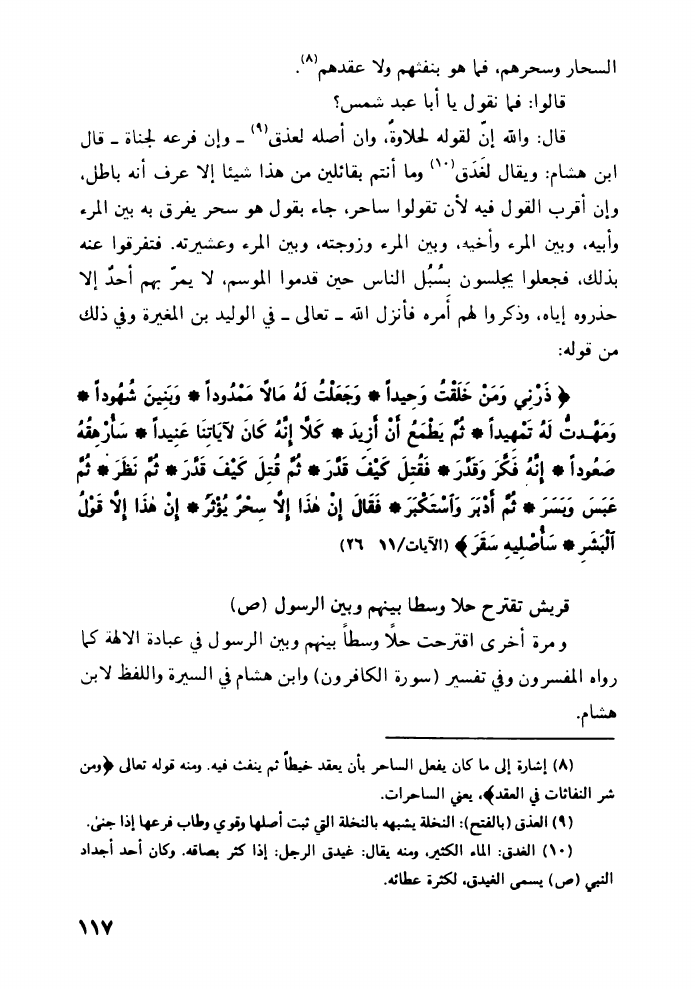 السحار وسحرهم، فما هو بنفثهم ولا عقدهم(٨).
قالوا: فما نقول يا أبا عبد شمس؟
قال: والله إنّ لقوله لحلاوةً، وان أصله لعذق(٩) ـ وإن فرعه لجناة ـ قال
ابن هشام: ويقال لغَدَق(١٠) وما أنتم بقائلين من هذا شيئا إلا عرف أنه باطل،
وإن أقرب القول فيه لأن تقولوا ساحر، جاء بقول هو سحر يفرق به بين المرء
وأبيه، وبين المرء وأخيه، وبين المرء وزوجته، وبين المرء وعشيرته. فتفرقوا عنه
بذلك، فجعلوا يجلسون بسُبُل الناس حين قدموا الموسم، لا يمرّ بهم أحدٌ إلا
حذروه إياه، وذكروا لهم أمره فأنزل الله ـ تعالى ـ في الوليد بن المغيرة وفي ذلك
من قوله:
﴿ ذَرْنِي وَمَنْ خَلَقْتُ وَحِيداً * وَجَعَلْتُ لَهُ مَالًا مَمْدُوداً * وَبَنِينَ شُهُوداً *
وَمَهَّدتُّ لَهُ تَمْهِيداً * ثُمَّ يَطْمَعُ أَنْ أَزِيدَ * كَلَّا إِنَّهُ كَانَ لآيَاتِنَا عَنِيداً * سَأُرْهِقُهُ
صَعُوداً * إِنَّهُ فَكَّرَ وَقَدَّرَ * فَقُتِلَ كَيْفَ قَدَّرَ * ثُمَّ قُتِلَ كَيْفَ قَدَّرَ * ثُمَّ نَظَرَ * ثُمَّ
عَبَسَ وَبَسَرَ * ثُمَّ أَدْبَرَ وَاسْتَكْبَرَ * فَقَالَ إِنْ هٰذَا إِلَّا سِحْرٌ يُؤْثَرُ * إِنْ هٰذَا إِلَّا قَوْلُ
ٱلْبَشَرِ * سَأُصْلِيهِ سَقَرَ ﴾ (الآيات/١١ ٢٦)
قريش تقترح حلا وسطا بينهم وبين الرسول (ص)
ومرة أخرى اقترحت حلّا وسطاً بينهم وبين الرسول في عبادة الالهة كما
رواه المفسرون وفي تفسير (سورة الكافرون) وابن هشام في السيرة واللفظ لابن
هشام.
(٨) إشارة إلى ما كان يفعل الساحر بأن يعقد خيطاً ثم ينفث فيه. ومنه قوله تعالى ﴿ومن
شر النفاثات في العقد﴾، يعني الساحرات.
(٩) العذق (بالفتح): النخلة يشبهه بالنخلة التي ثبت أصلها وقوي وطاب فرعها إذا جنىٰ.
(١٠) الغدق: الماء الكثير، ومنه يقال: غيدق الرجل: إذا كثر بصاقه. وكان أحد أجداد
النبي (ص) يسمى الغيدق، لكثرة عطائه.
١١٧